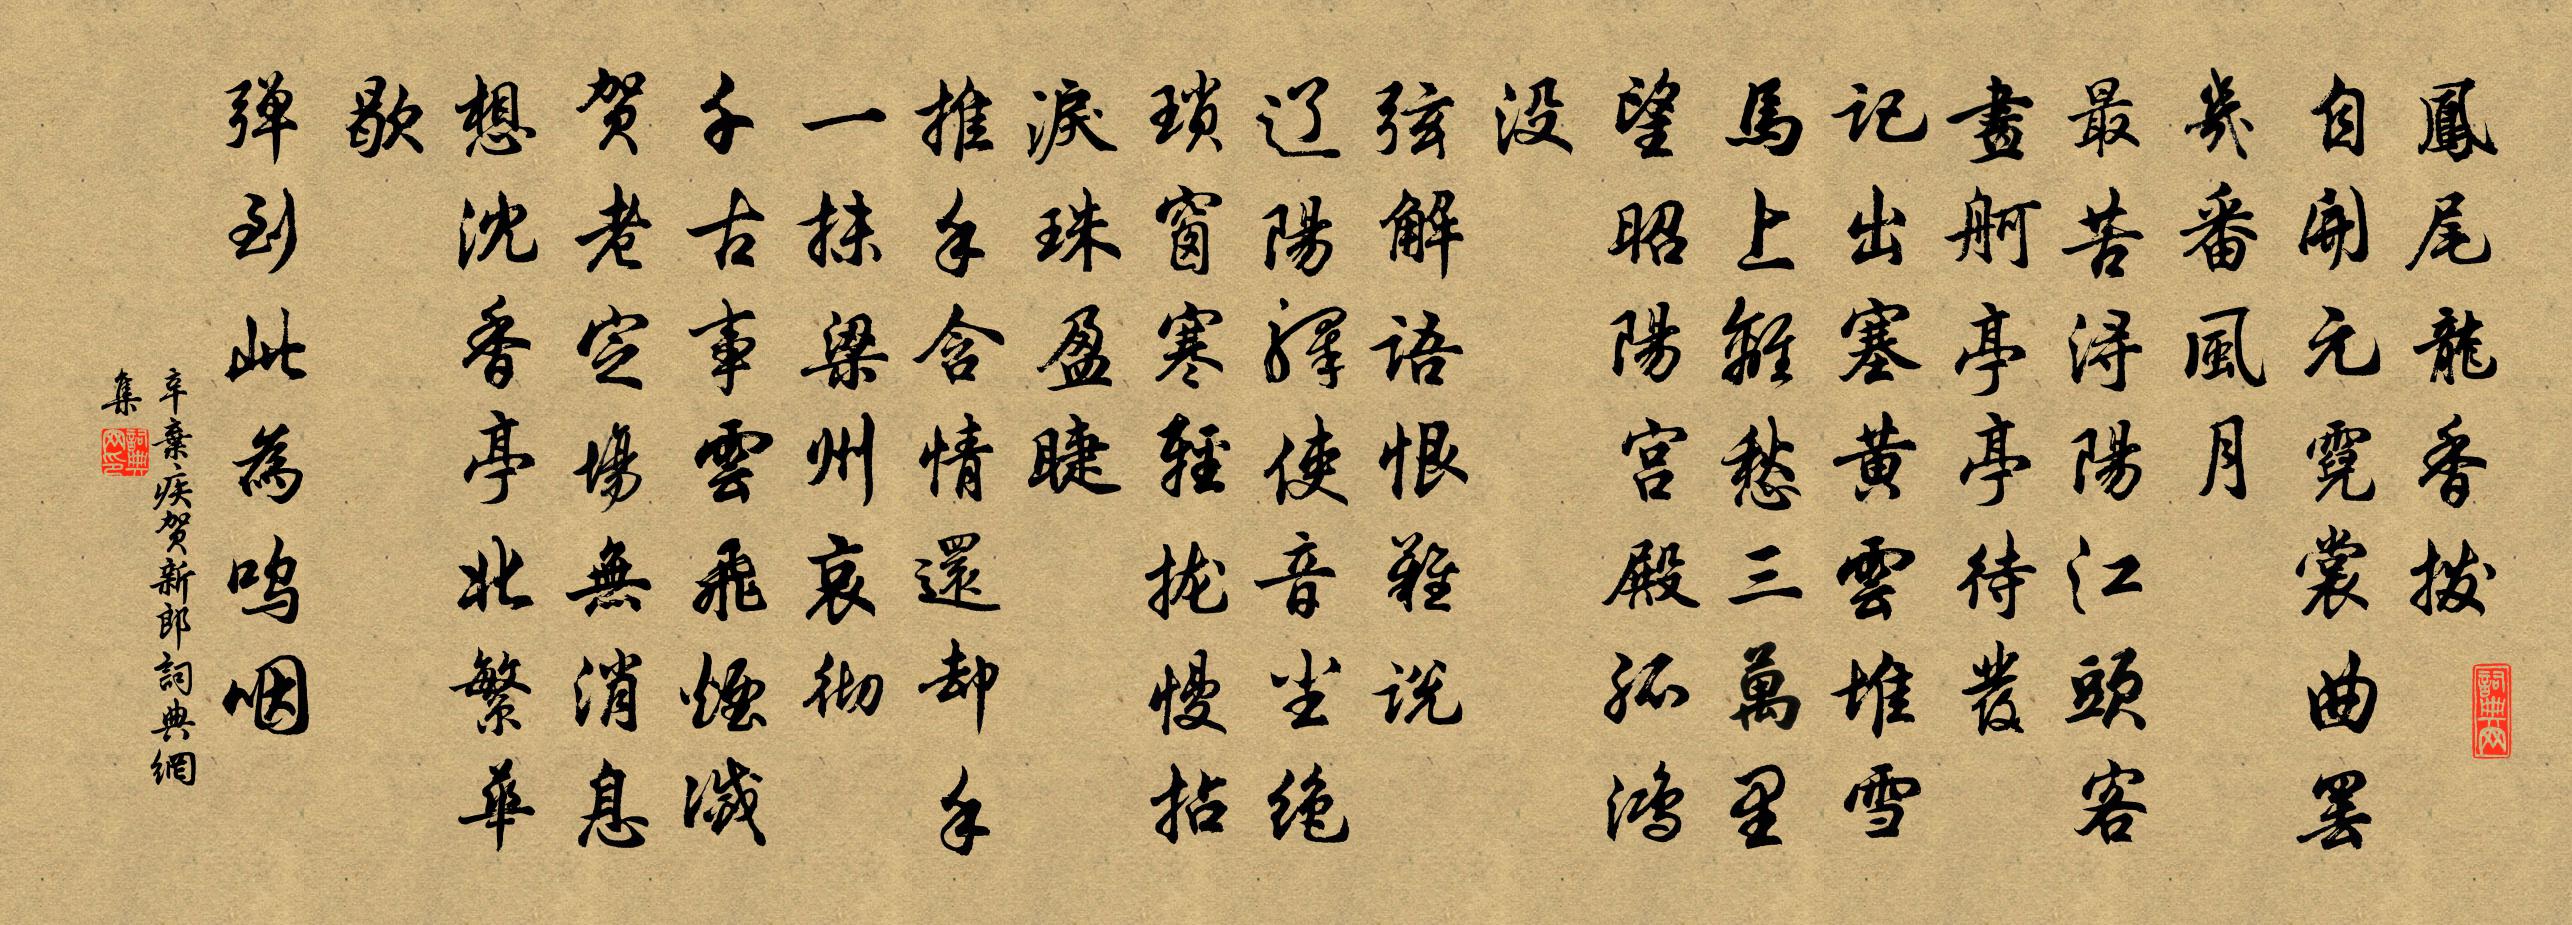 鳳尾龍香拨
自開元霓裳曲罢
幾番風月
最苦浔陽江頭客
畫舸亭亭待發
记出塞黄雲堆雪
馬上離愁三萬里
望昭陽宫殿孤鸿
没
弦解語恨難说
辽陽驛使音尘绝
瑣窗寒輕拢慢拈
淚珠盈睫
推手含情還却手
一抹梁州哀彻
千古事雲飛煙滅
贺老定場無消息
想沈香亭北繁華
歇
弹到此為呜咽
辛棄疾贺新郎詞典網
集
詞典网
詞典网印